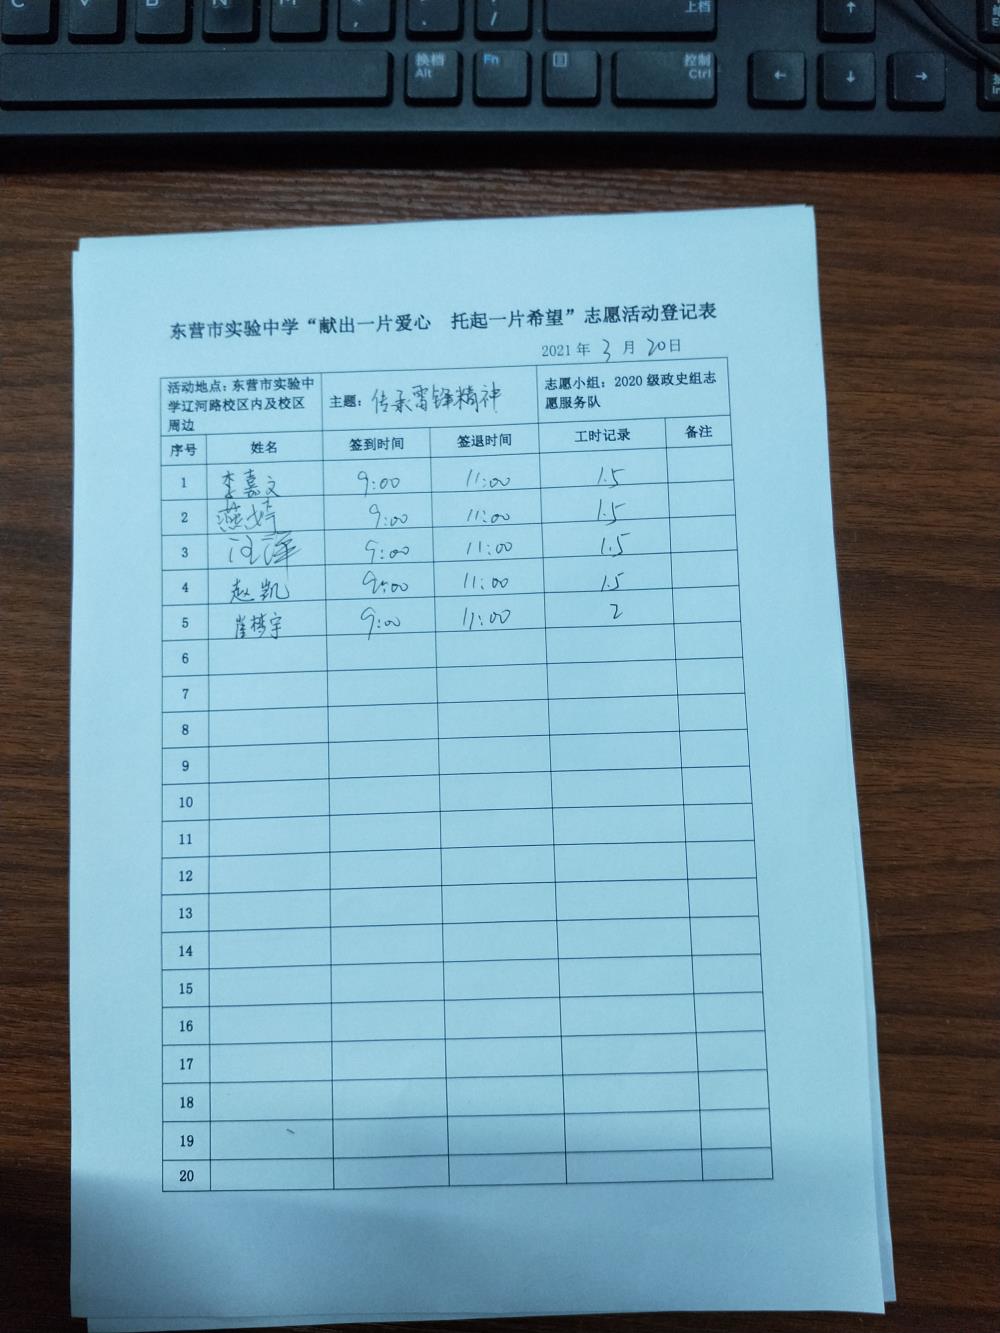 C V B N M < > ? / 上档 ↑
换档 Alt Fn 控制 Ctrl ← ↓ →
东营市实验中学“献出一片爱心 托起一片希望”志愿活动登记表
2021 年 3 月 20 日
活动地点：东营市实验中学辽河路校区内及校区周边 主题：传承雷锋精神 志愿小组：2020 级政史组志愿服务队
序号 姓名 签到时间 签退时间 工时记录 备注
1 李嘉文 9:00 11:00 1.5
2 燕婷 9:00 11:00 1.5
3 汪洋 9:00 11:00 1.5
4 赵凯 9:00 11:00 1.5
5 崔梦宇 9:00 11:00 2
6
7
8
9
10
11
12
13
14
15
16
17
18
19
20